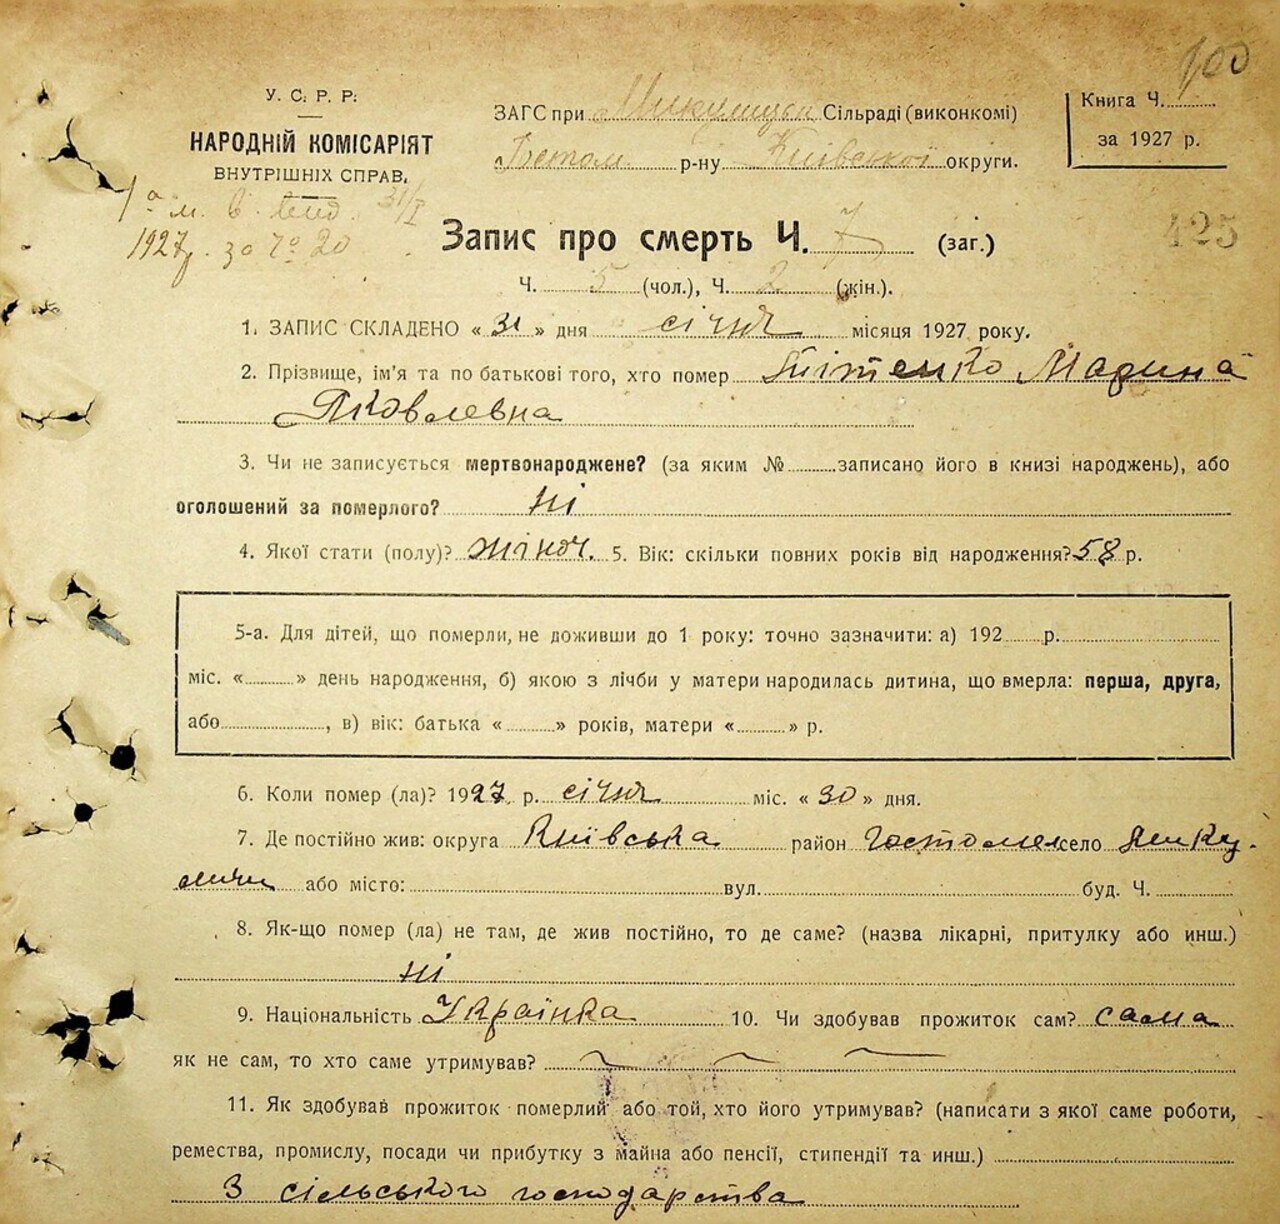 100
У. С. Р. Р.
НАРОДНІЙ КОМІСАРІЯТ
ВНУТРІШНІХ СПРАВ.
ЗАГС при Микулицьк Сільраді (виконкомі)
Гостом р-ну Київської округи.
Книга Ч.
за 1927 р.
31/I
1927 р. за № 20
425
Запис про смерть Ч. 7 (заг.)
Ч. 5 (чол.), Ч. 2 (жін.).
1. ЗАПИС СКЛАДЕНО « 31 » дня січня місяця 1927 року.
2. Прізвище, ім'я та по батькові того, хто помер Марина
Яковлевна
3. Чи не записується мертвонароджене? (за яким № записано його в книзі народжень), або
оголошений за померлого? ні
4. Якої стати (полу)? жіноч. 5. Вік: скільки повних років від народження? 58 р.
5-а. Для дітей, що померли, не доживши до 1 року: точно зазначити: а) 192 р.
міс. « » день народження, б) якою з лічби у матери народилась дитина, що вмерла: перша, друга,
або , в) вік: батька « » років, матери « » р.
6. Коли помер (ла)? 1927 р. січня міс. « 30 » дня.
7. Де постійно жив: округа Київська район Гостомел село Мику-
личи або місто: вул. буд. Ч.
8. Як-що помер (ла) не там, де жив постійно, то де саме? (назва лікарні, притулку або инш.)
ні
9. Національність Українка 10. Чи здобував прожиток сам? сама
як не сам, то хто саме утримував?
11. Як здобував прожиток померлий або той, хто його утримував? (написати з якої саме роботи,
ремества, промислу, посади чи прибутку з майна або пенсії, стипендії та инш.)
З сільського господарства